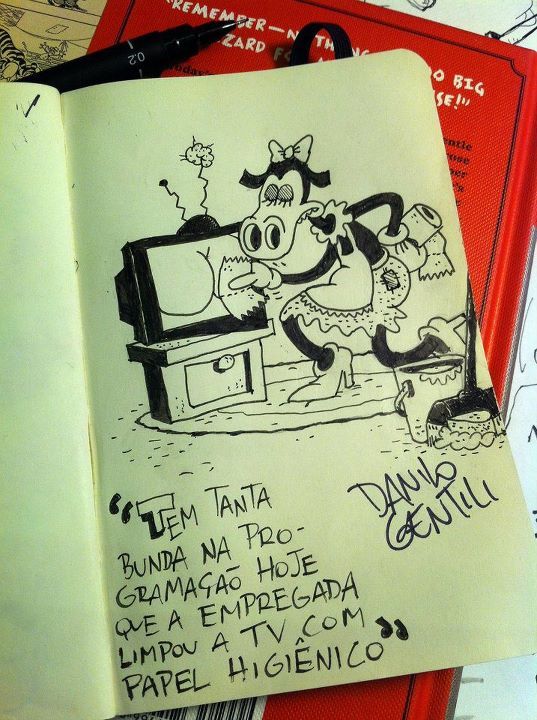 "REMEMBER—
BIG
0.2
"TEM TANTA
BUNDA NA PRO-
GRAMAÇAÕ HOJE
QUE A EMPREGADA
LIMPOU A TV COM
PAPEL HIGIÊNICO"
DANILO
GENTILI